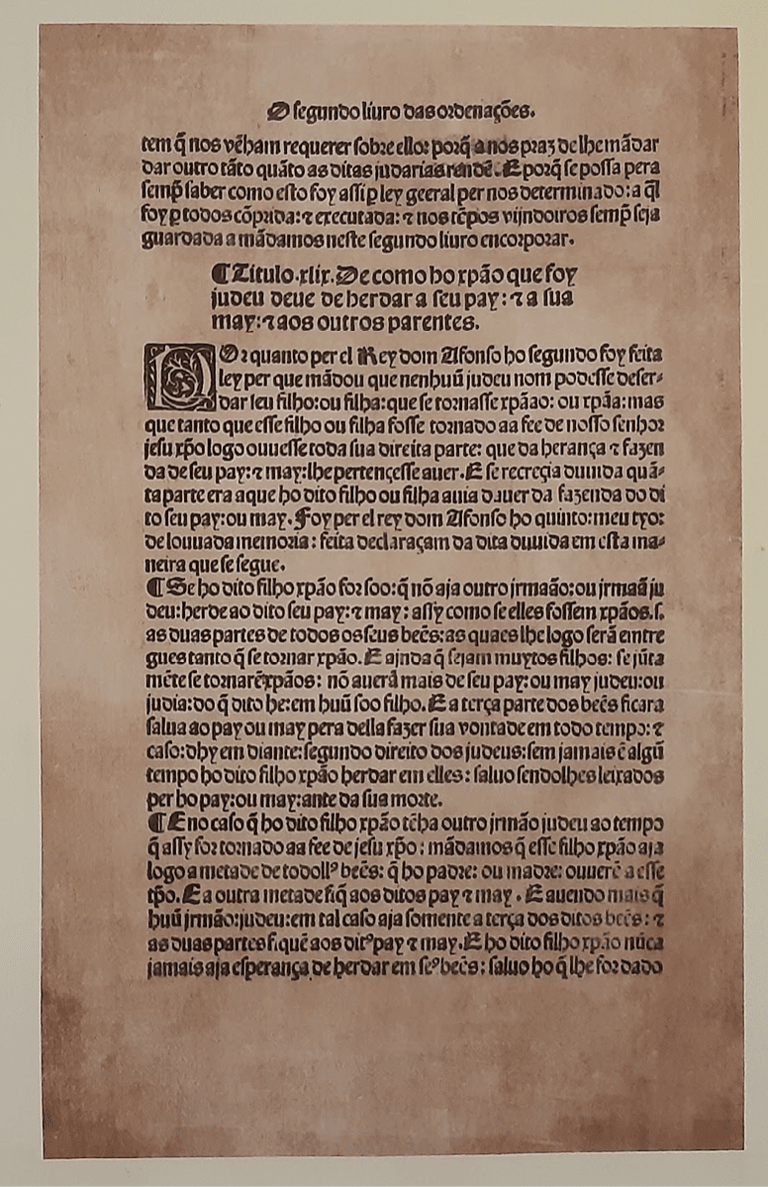 O segundo liuro das ordenações.
tem q̃ nos vẽham requerer sobre ello: porq̃ a nos praz de lhe mãdar
dar outro tãto quãto as ditas judarias rendẽ. E porq̃ se possa pera
semp̃ saber como esto foy assi ꝑ ley geeral per nos determinado: a q̃l
foy ꝑ todos cõprida: ⁊ executada: ⁊ nos tẽpos vijndoiros semp̃ seja
guardada a mãdamos neste segundo liuro encorporar.
¶ Titulo .xlix. De como ho xpão que foy
judeu deue de herdar a seu pay: ⁊ a sua
may: ⁊ aos outros parentes.
POr quanto per el Rey dom Afonso ho segundo foy feita
ley per que mãdou que nenhuũ judeu nom podesse deser⸗
dar seu filho: ou filha: que se tornasse xpãao: ou xpãa: mas
que tanto que esse filho ou filha fosse tornado aa fee de nosso senhor
jesu xp̃o logo ouuesse toda sua direita parte: que da herança ⁊ fazen
da de seu pay: ⁊ may: lhe pertençesse auer. E se recreçia duuida quã⸗
ta parte era a que ho dito filho ou filha auia dauer da fazenda do di
to seu pay: ou may. Foy per el rey dom Afonso ho quinto: meu tyo:
de louuada memoria: feita declaraçam da dita duuida em esta ma⸗
neira que se segue.
¶ Se ho dito filho xpão for soo: q̃ nõ aja outro jrmaão: ou jrmaã ju
deu: herde ao dito seu pay: ⁊ may: assy como se elles fossem xpãos .s.
as duas partes de todos os seus beẽs: as quaes lhe logo serã entre
gues tanto q̃ se tornar xpão. E ajnda q̃ sejam muytos filhos: se jũta
mẽte se tornarẽ xpãos: nõ auerã mais de seu pay: ou may judeu: ou
judia: do q̃ dito he: em huũ soo filho. E a terça parte dos beẽs ficara
salua ao pay ou may pera della fazer sua vontade em todo tempo: ⁊
caso: dhy em diante: segundo direito dos judeus: sem jamais ẽ algũ
tempo ho dito filho xpão herdar em elles: saluo sendolhes leixados
per ho pay: ou may: ante da sua morte.
¶ E no caso q̃ ho dito filho xpão tẽha outro jrmão judeu ao tempo
q̃ assy for tornado aa fee de jesu xp̃o: mãdamos q̃ esse filho xpão aja
logo a metade de todollꝰ beẽs: q̃ ho padre: ou madre: ouuerẽ a esse
tp̃o. E a outra metade fiq̃ aos ditos pay ⁊ may. E auendo mais q̃
huũ jrmão: judeu: em tal caso aja somente a terça dos ditos beẽs: ⁊
as duas partes fiquẽ aos ditꝰ pay ⁊ may. E ho dito filho xpão nũca
jamais aja esperança de herdar em seꝰ beẽs: saluo ho q̃ lhe for dado